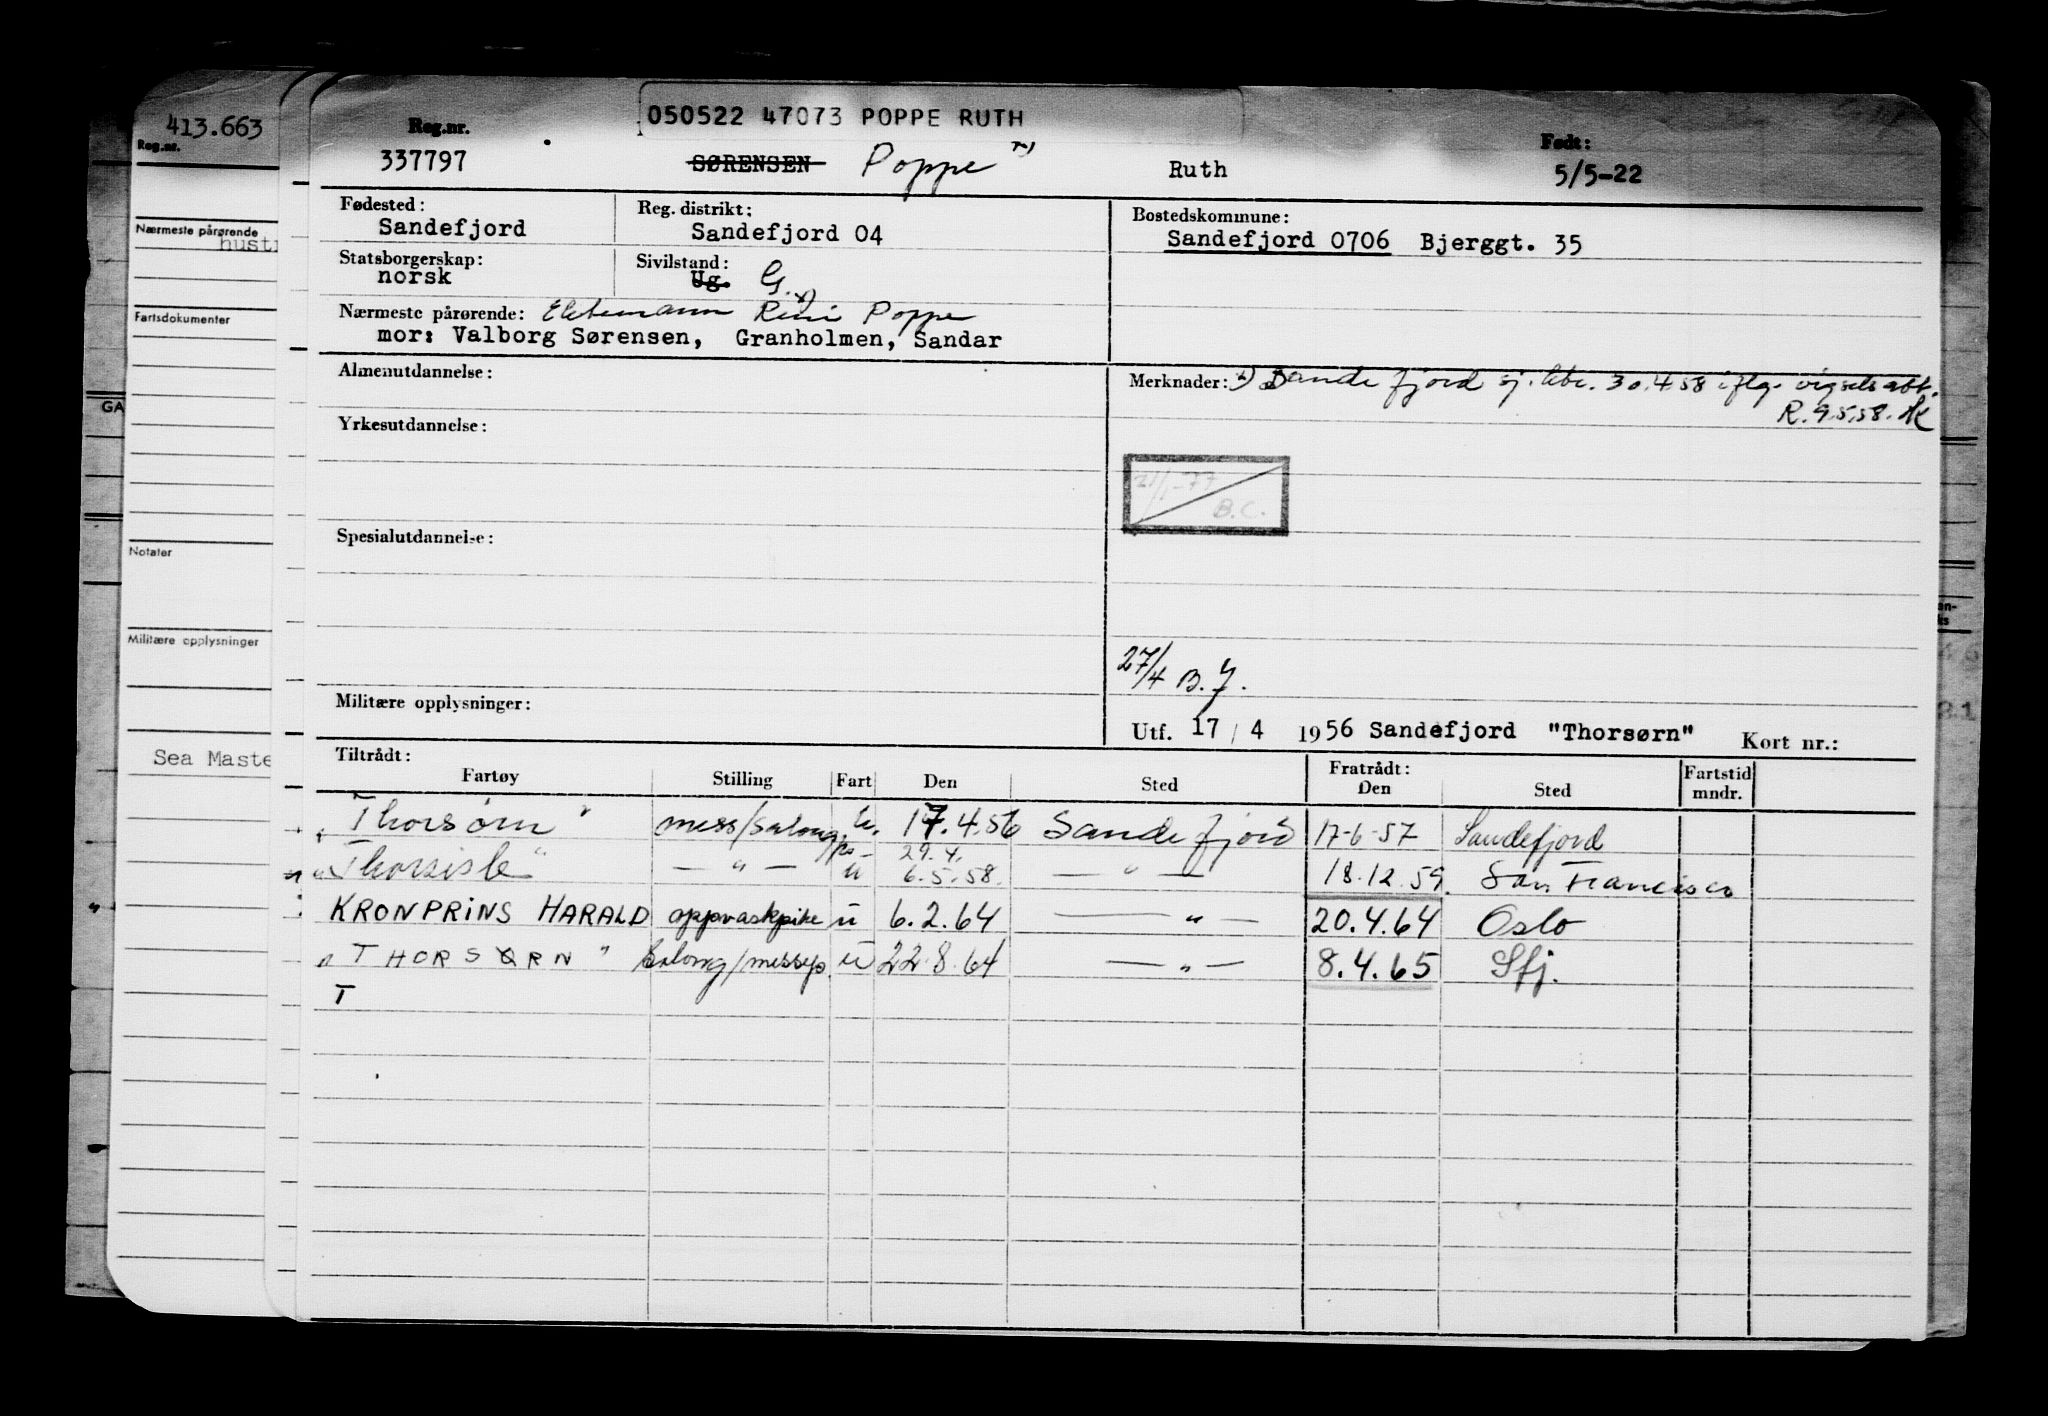 413.663
Reg.nr.
Nærmeste pårørende
hust
Fartsdokumenter
GA
Notater
Militære opplysninger
Sea Maste
050522 47073 POPPE RUTH
Reg.nr. Født:
337797 SØRENSEN Poppe x) Ruth 5/5-22
Fødested: Reg. distrikt: Bostedskommune:
Sandefjord Sandefjord 04 Sandefjord 0706 Bjerggt. 35
Statsborgerskap: Sivilstand:
norsk Ug. G. x)
Nærmeste pårørende: Ektemann Poppe
mor: Valborg Sørensen, Granholmen, Sandar
Almenutdannelse: Merknader: x) Sandefjord 30.4.58 iflg. vigselsatt.
R. 9.5.58.
Yrkesutdannelse:
21/1-77
B.C.
Spesialutdannelse:
27/4 B.J.
Militære opplysninger:
Utf. 17 / 4 1956 Sandefjord "Thorsørn" Kort nr.:
Tiltrådt: Fratrådt: Fartstid
Fartøy Stilling Fart Den Sted Den Sted mndr.
"Thorsørn" mess/salong.p. u. 17.4.56 Sandefjord 17-6-57 Sandefjord
29.4.
"Thorsisle" — " — u 6.5.58. — " — 18.12.59. San Francisco
KRONPRINS HARALD oppvaskpike u 6.2.64 — " — 20.4.64 Oslo
" THORSØRN " Salong/messep. u 22.8.64 — " — 8.4.65 Sfj.
T